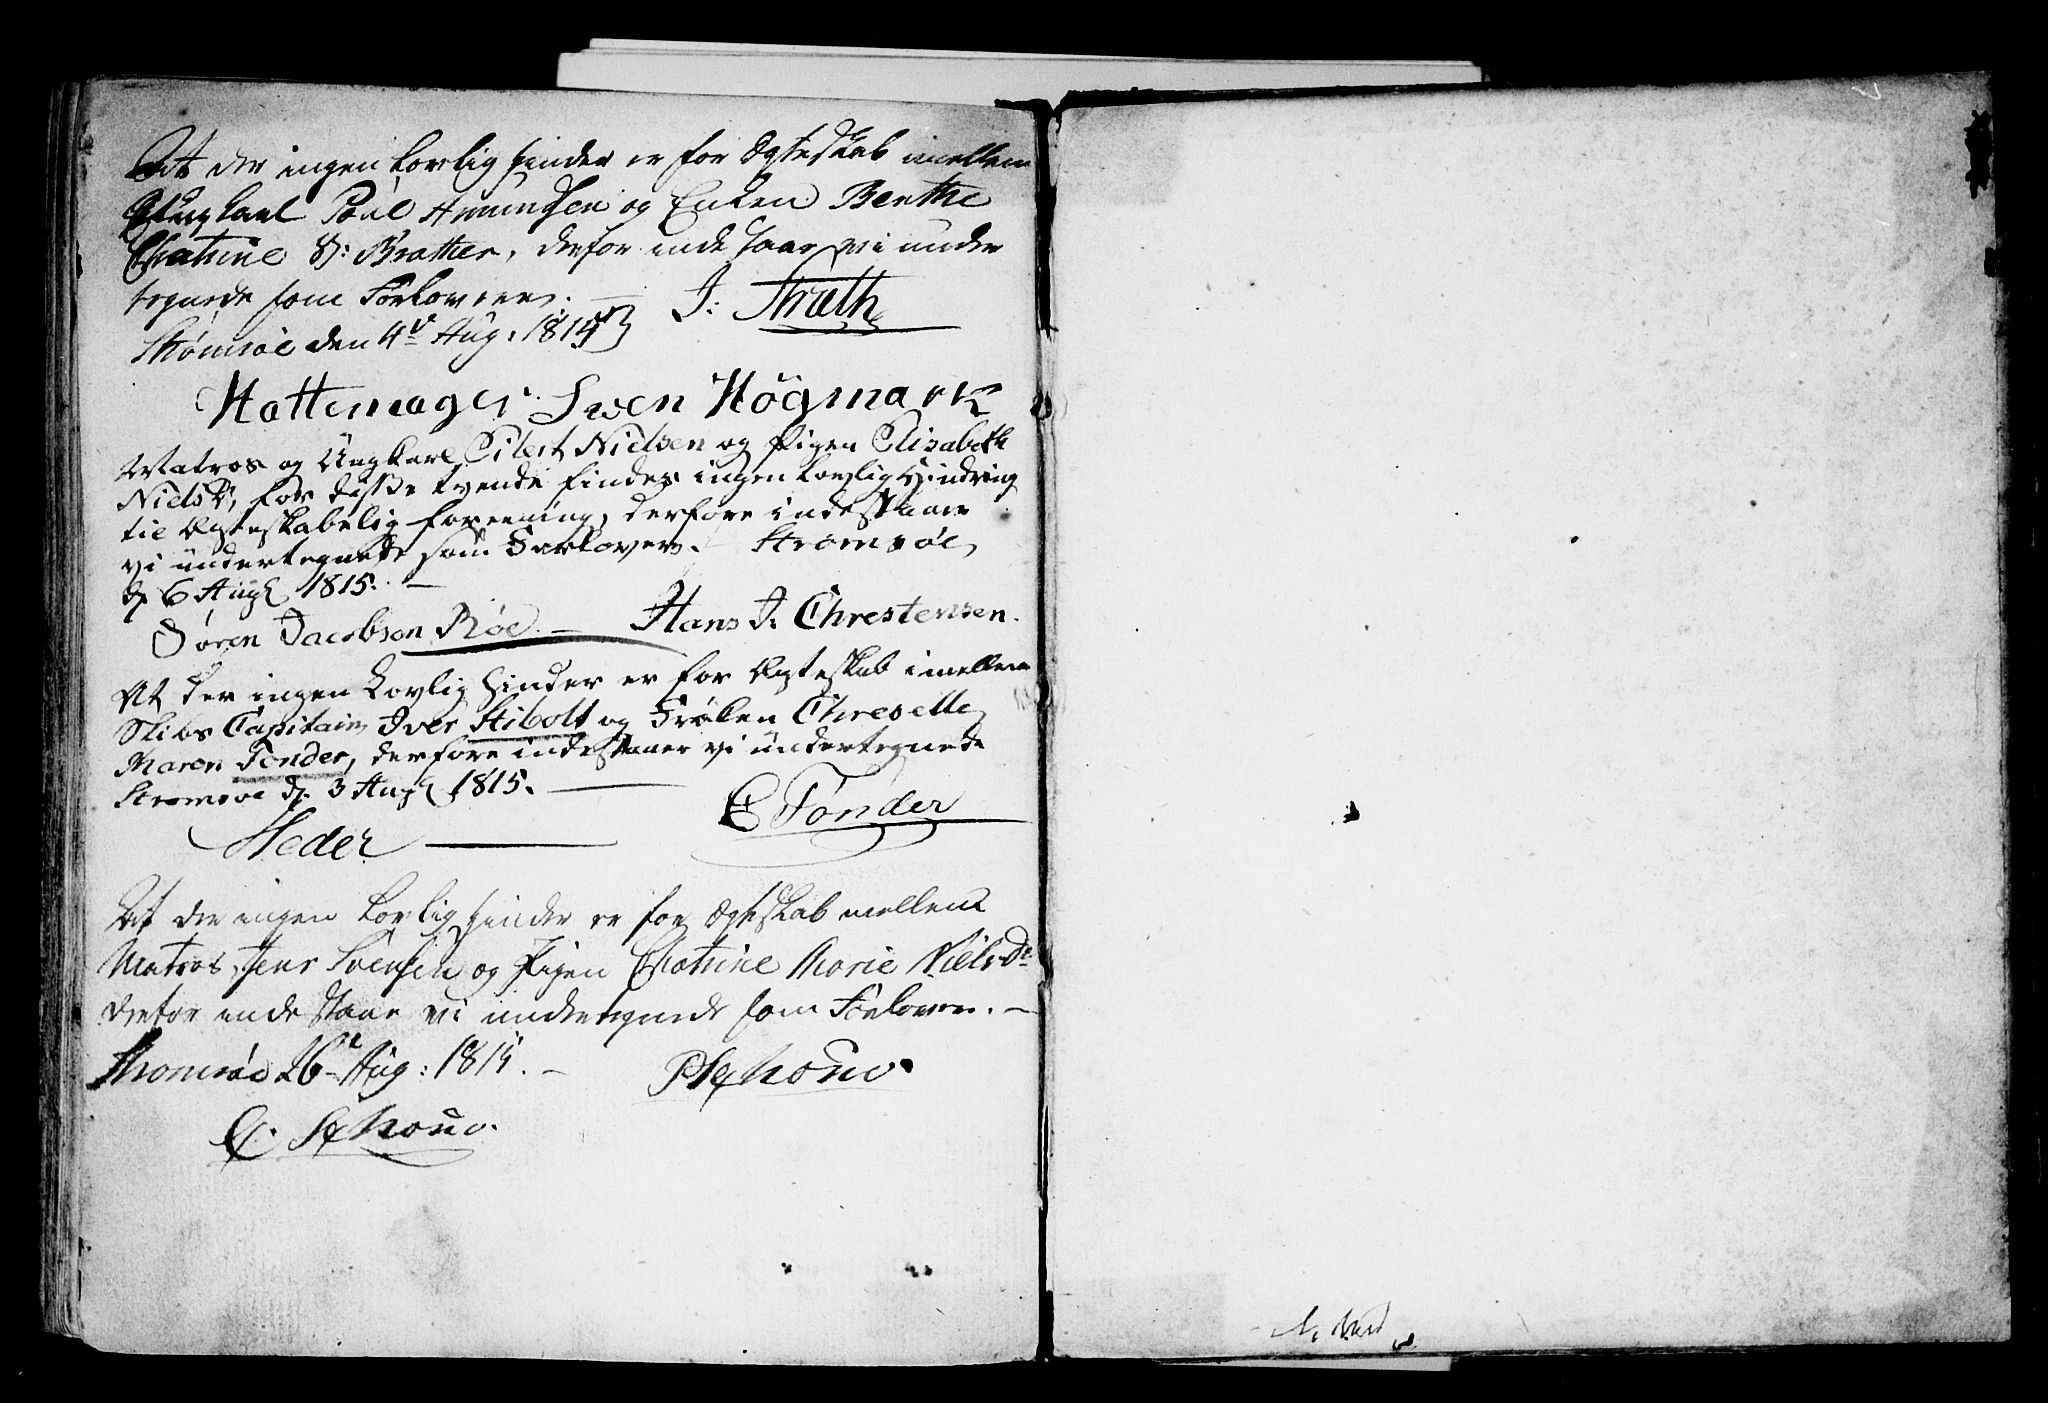 At der ingen Lovlig hinder er for Ægteskab imellem
Ungkarl Poul Amundsen og Enken Berthe
Chatrine D: Brather, derfor inde staar vi under
tegnede som Forlovere. —
Strømsøe den 4de Aug: 1815
J: Stræth
Hattemager Swen Högmark
Matros og Ungkarl Eilert Nielsen og Pigen Elisabeth
Niels Dr, for disse tvende findes ingen Lovlig Hindring
til Ægteskabelig foreening, derfore indestaaer
vi undertegnede som Forlovere. Strømsøe
d 6 Augt 1815. —
Søren Jacobsen Röe. — Hans J. Chrestensen.
At der ingen Lovlig hinder er for Ægteskab imellem
Skibs Capitain Iver Stibolt og Frølen Chreselle
Maren Tonder, derfore indestaaer vi undertegnede
Strømsøe d. 3 Augt 1815. —
C Tønder
Heder
At der ingen Lovlig hinder er for Ægteskab mellem
Matros Jens Svensen og Pigen Chatrine Marie Niels Dr
derfor inde staar vi undertegnede som Forlovere. —
Strømsøe 26 Aug: 1815. —
P Schouv.
C. Schouv.